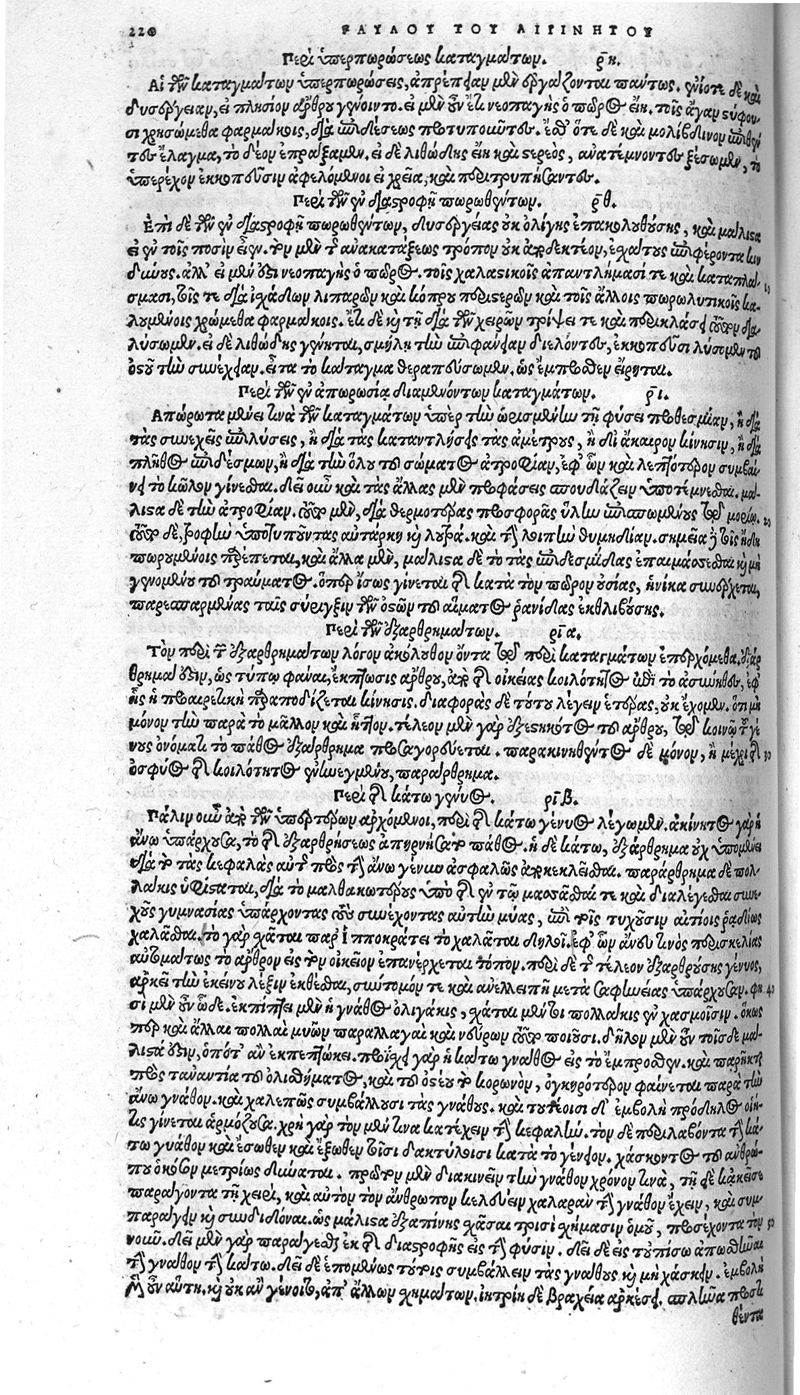 220 ΠΑΥΛΟΥ ΤΟΥ ΑΙΓΙΝΗΤΟΥ
Περὶ ὑπερπωρώσεως καταγμάτων. ρη.
Αἱ τῶν καταγμάτων ὑπερπωρώσεις, ἀπρέπειαν μὲν ἐργάζονται πάντως. ἐνίοτε δὲ καὶ
δυσέργειαν, εἰ πλησίον ἄρθρου γένοιντο. εἰ μὲν οὖν ἔτι νεοπαγὴς ὁ πῶρος εἴη. τοῖς ἄγαν στύφου-
σι χρησώμεθα φαρμάκοις, διὰ ἐπιδέσεως προτυποῦντες. ἔσθ' ὅτε δὲ καὶ μολίβδινον ἐπιθέν
τες ἔλασμα, τὸ δέον ἐπράξαμεν. εἰ δὲ λιθώδης εἴη καὶ στερεός, ἀνατέμνοντες ξέσωμεν, τὸ
ὑπερέχον ἐκκοπεῦσιν ἀφελόμενοι εἰ χρεία, καὶ περιτρυπήσαντες.
Περὶ τῶν ἐν διαστροφῇ πωρωθέντων. ρθ.
Ἐπὶ δὲ τῶν ἐν διαστροφῇ πωρωθέντων, δυσεργείας οὐκ ὀλίγης ἐπακολουθούσης, καὶ μάλιστα
εἰ ἐν τοῖς ποσὶν εἶεν. τὸν μὲν τῆς ἀνακατάξεως τρόπον οὐκ ἀποδεκτέον, ἐσχάτους ἐπιφέροντα κιν
δύνους. ἀλλ' εἰ μὲν ἔτι νεοπαγὴς ὁ πῶρος. τοῖς χαλαστικοῖς ἀπαντλήμασί τε καὶ καταπλά-
σμασι, τοῖς τε διὰ ἰσχάδων λιπαρῶν καὶ κόπρου περιστερῶν καὶ τοῖς ἄλλοις πωρολυτικοῖς κα- 10
λουμένοις χρώμεθα φαρμάκοις. ἔτι δὲ καὶ τῇ διὰ τῶν χειρῶν τρίψει τε καὶ περικλάσει τοῦτον δια-
λύσωμεν. εἰ δὲ λιθώδης γένηται, σμίλῃ τὴν ἐπιφάνειαν διελόντες, ἐκκοπεῦσι λύσωμεν τοῦ
ὀστοῦ τὴν συνέχειαν. εἶτα τὸ κάταγμα θεραπεύσωμεν, ὡς ἔμπροσθεν εἴρηται.
Περὶ τῶν ἐν ἀπωρωσίᾳ διαμενόντων καταγμάτων. ρι.
Ἀπώρωτα μένει τινὰ τῶν καταγμάτων ὑπὲρ τὴν ὡρισμένην τῇ φύσει προθεσμίαν, ἢ διὰ
τὰς συνεχεῖς ἐπιλύσεις, ἢ διὰ τὰς καταντλήσεις τὰς ἀμέτρους, ἢ δι' ἄκαιρον κίνησιν, ἢ διὰ
πλῆθος ἐπιδέσμων, ἢ διὰ τὴν ὅλου τοῦ σώματος ἀτροφίαν, ἐφ' ὧν καὶ λεπτότερον συμβαί-
νει τὸ κῶλον γίνεσθαι. δεῖ οὖν καὶ τὰς ἄλλας μὲν προφάσεις σπουδάζειν ὑποτέμνεσθαι. μά-
λιστα δὲ τὴν ἀτροφίαν. τοῦτο μὲν, διὰ θερμοτέρας προσφορᾶς ὕλην ἐπισπωμένους τῷ μορίῳ. 20
τοῦτο δὲ, τροφὴν ὑποτυποῦντας αὐτάρκη καὶ λουτρά. καὶ τὴν λοιπὴν θυμηδίαν. σημεῖα δὲ τοῖς ἤδη
πωρουμένοις πρέπεται, καὶ ἄλλα μὲν, μάλιστα δὲ τὸ τὰς ἐπιδεσμίδας ἐπαιμάσσεσθαι καὶ μὴ
γενομένου τοῦ τραύματος. ὅπερ ἴσως γίνεται τῆς κατὰ τὸν πῶρον οὐσίας, ἡνίκα συνέρχεται,
παρεσπαρμένας ταῖς συρίγξιν τῶν ὀστῶν τοῦ αἵματος ῥανίδας ἐκθλιβούσης.
Περὶ τῶν ἐξαρθρημάτων. ρια.
Τὸν περὶ τῶν ἐξαρθρημάτων λόγον ἀκόλουθον ὄντα τῷ περὶ καταγμάτων ἐπερχόμεθα. ἐξάρ
θρημα ἐστὶν, ὡς τύπῳ φάναι, ἔκπτωσις ἄρθρου, ἀπὸ τῆς οἰκείας κοιλότητος ἐπὶ τὸ ἀσύνηθες, ἐφ'
ἧς ἡ προαιρετικὴ παραποδίζεται κίνησις. διαφορὰς δὲ τούτου λέγειν ἑτέρας, οὐκ ἔχομεν. ὅτι μὴ
μόνον τὴν παρὰ τὸ μᾶλλον καὶ ἧττον. τέλεον μὲν γὰρ ἐξεστηκότος τοῦ ἄρθρου, τῷ κοινῷ τοῦ γέ-
νους ὀνόματι τὸ πάθος ἐξάρθρημα προσαγορεύεται. παρακινηθέντος δὲ μόνον, ἢ μέχρι τῆς 30
ὀσφύος τῆς κοιλότητος ἐνηνεγμένου, παράρθρημα.
Περὶ τῆς κάτω γένυος. ριβ.
Πάλιν οὖν ἀπὸ τῶν ὑπερτέρων ἀρχόμενοι, περὶ τῆς κάτω γένυος λέγωμεν. ἀκίνητος γὰρ ἡ
ἄνω ὑπάρχουσα, τὸ τῆς ἐξαρθρήσεως ἀπηρνήσατο πάθος. ἡ δὲ κάτω, ἐξάρθρημα οὐχ ὑπομένει
διὰ τὸ τὰς κεφαλὰς αὐτῆς πρὸς τὴν ἄνω γένυν ἀσφαλῶς ἀποκεκλεῖσθαι. παράρθρημα δὲ πολ-
λάκις ὑφίσταται, διὰ τὸ μαλθακωτέρους ὑπὸ τῆς ἐν τῷ μασᾶσθαί τε καὶ διαλέγεσθαι συνε-
χοῦς γυμνασίας ὑπάρχοντας τοὺς συνέχοντας αὐτὴν μύας, ἐπὶ τοῖς τυχοῦσιν αἰτίοις ῥᾳδίως
χαλᾶσθαι. τὸ γὰρ σχᾶται παρ' Ἱπποκράτει τὸ χαλᾶται δηλοῖ. ἐφ' ὧν ἄνευ τινὸς περισκελίας
αὐτομάτως τὸ ἄρθρον εἰς τὸν οἰκεῖον ἐπανέρχεται τόπον. περὶ δὲ τῆς τέλεον ἐξαρθρούσης γένυος,
ἀρκεῖ τὴν ἐκείνου λέξιν ἐκθέσθαι, σύντομόν τε καὶ ἀνελλειπῆ μετὰ σαφηνείας ὑπάρχουσαν. φη 40
σὶ μὲν οὖν ὧδε. ἐκπίπτει μὲν ἡ γνάθος ὀλιγάκις, σχᾶται μέντοι πολλάκις ἐν χασμήσιν. ὅκως
περ καὶ ἄλλαι πολλαὶ μυῶν παραλλαγαὶ καὶ νεύρων τοῦτο ποιοῦσι. δῆλον μὲν οὖν τοῖσδε μά-
λιστά ἐστιν, ὁπότ' ἂν ἐκπεπτώκει. προΐσχει γὰρ ἡ κάτω γνάθος εἰς τὸ ἔμπροσθεν. καὶ παρῆκται
πρὸς τἀναντία τοῦ ὀλισθήματος, καὶ τοῦ ὀστέου τὸ κορωνὸν, ὀγκηρότερον φαίνεται παρὰ τὴν
ἄνω γνάθον. καὶ χαλεπῶς συμβάλλουσι τὰς γνάθους. καὶ τούτοισι δ' ἐμβολὴ πρόδηλος οἵη-
τις γίνεται ἁρμόζουσα. χρὴ γὰρ τὸν μέν τινα κατέχειν τὴν κεφαλήν. τὸν δὲ περιλαβόντα τὴν κά-
τω γνάθον καὶ ἔσωθεν καὶ ἔξωθεν τοῖσι δακτύλοισι κατὰ τὸ γένειον. χάσκοντος τοῦ ἀνθρώ-
που ὁκόσον μετρίως δύναται. πρῶτον μὲν διακινεῖν τὴν γνάθον χρόνον τινὰ, τῇ δὲ κἀκεῖσε
παράγοντα τῇ χειρὶ, καὶ αὐτὸν τὸν ἄνθρωπον κελεύειν χαλαρὰν τὴν γνάθον ἔχειν, καὶ συμ-
παράγειν καὶ συνδιδόναι. ὡς μάλιστα ἐξαπίνης σχάσαι τρισὶ σχήμασιν ὁμοῦ, προσέχοντα τὸν 50
νοῦν. δεῖ μὲν γὰρ παράγεσθαι ἐκ τῆς διαστροφῆς εἰς τὴν φύσιν. δεῖ δὲ εἰς τοὐπίσω ἀπωσθῆναι
τὴν γνάθον τὴν κάτω. δεῖ δὲ ἑπομένως τούτοις συμβάλλειν τὰς γνάθους καὶ μὴ χάσκειν. ἐμβολὴ
μὲν οὖν αὕτη, καὶ οὐκ ἂν γένοιτο, ἀπ' ἄλλων σχημάτων. ἰητρίη δὲ βραχεῖα ἀρκέσει. σπλῆνα προστι
θέντα